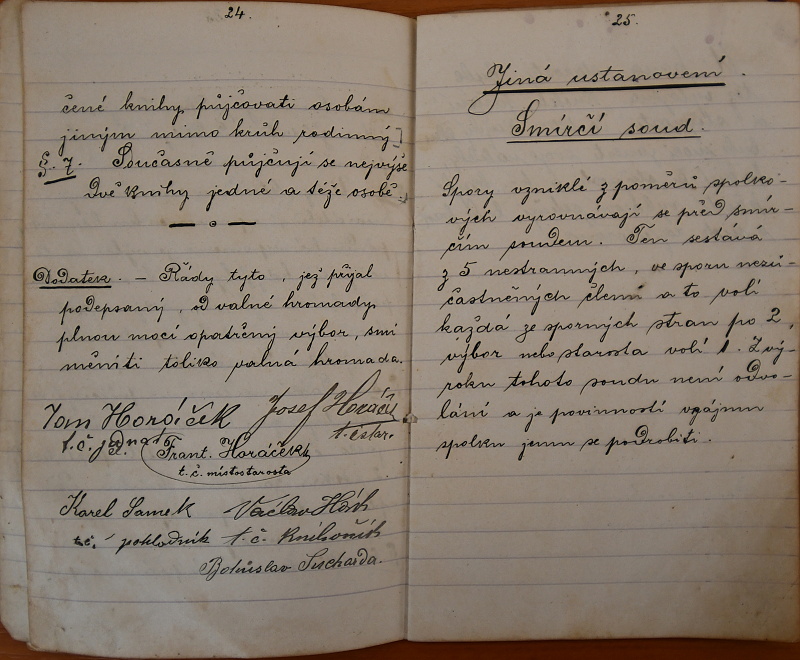 24.
čené knihy půjčovati osobám
jiným mimo kruh rodinný.
§. 7. Současně půjčují se nejvýše
dvě knihy jedné a téže osobě.
Dodatek. – Řády tyto, jež přijal
podepsaný, od valné hromady
plnou mocí opatřený výbor, smí
měniti toliko valná hromada.
Jan Horáček Josef Horáče
t. č. jednat. t. č. star.
Frant. Horáček
t. č. místostarosta
Karel Samek Václav
t. č. pokladník t. č. knihovník
Bohuslav Sucharda.
25.
Jiná ustanovení.
Smírčí soud.
Spory vzniklé z poměrů spolko-
vých vyrovnávají se před smír-
čím soudem. Ten sestává
z 5 nestranných, ve sporu nezú-
častněných členů a to volí
každá ze sporných stran po 2,
výbor nebo starosta volí 1. Z vý-
roku tohoto soudu není odvo-
lání a je povinností vzájemn
spolku jemu se podrobiti.